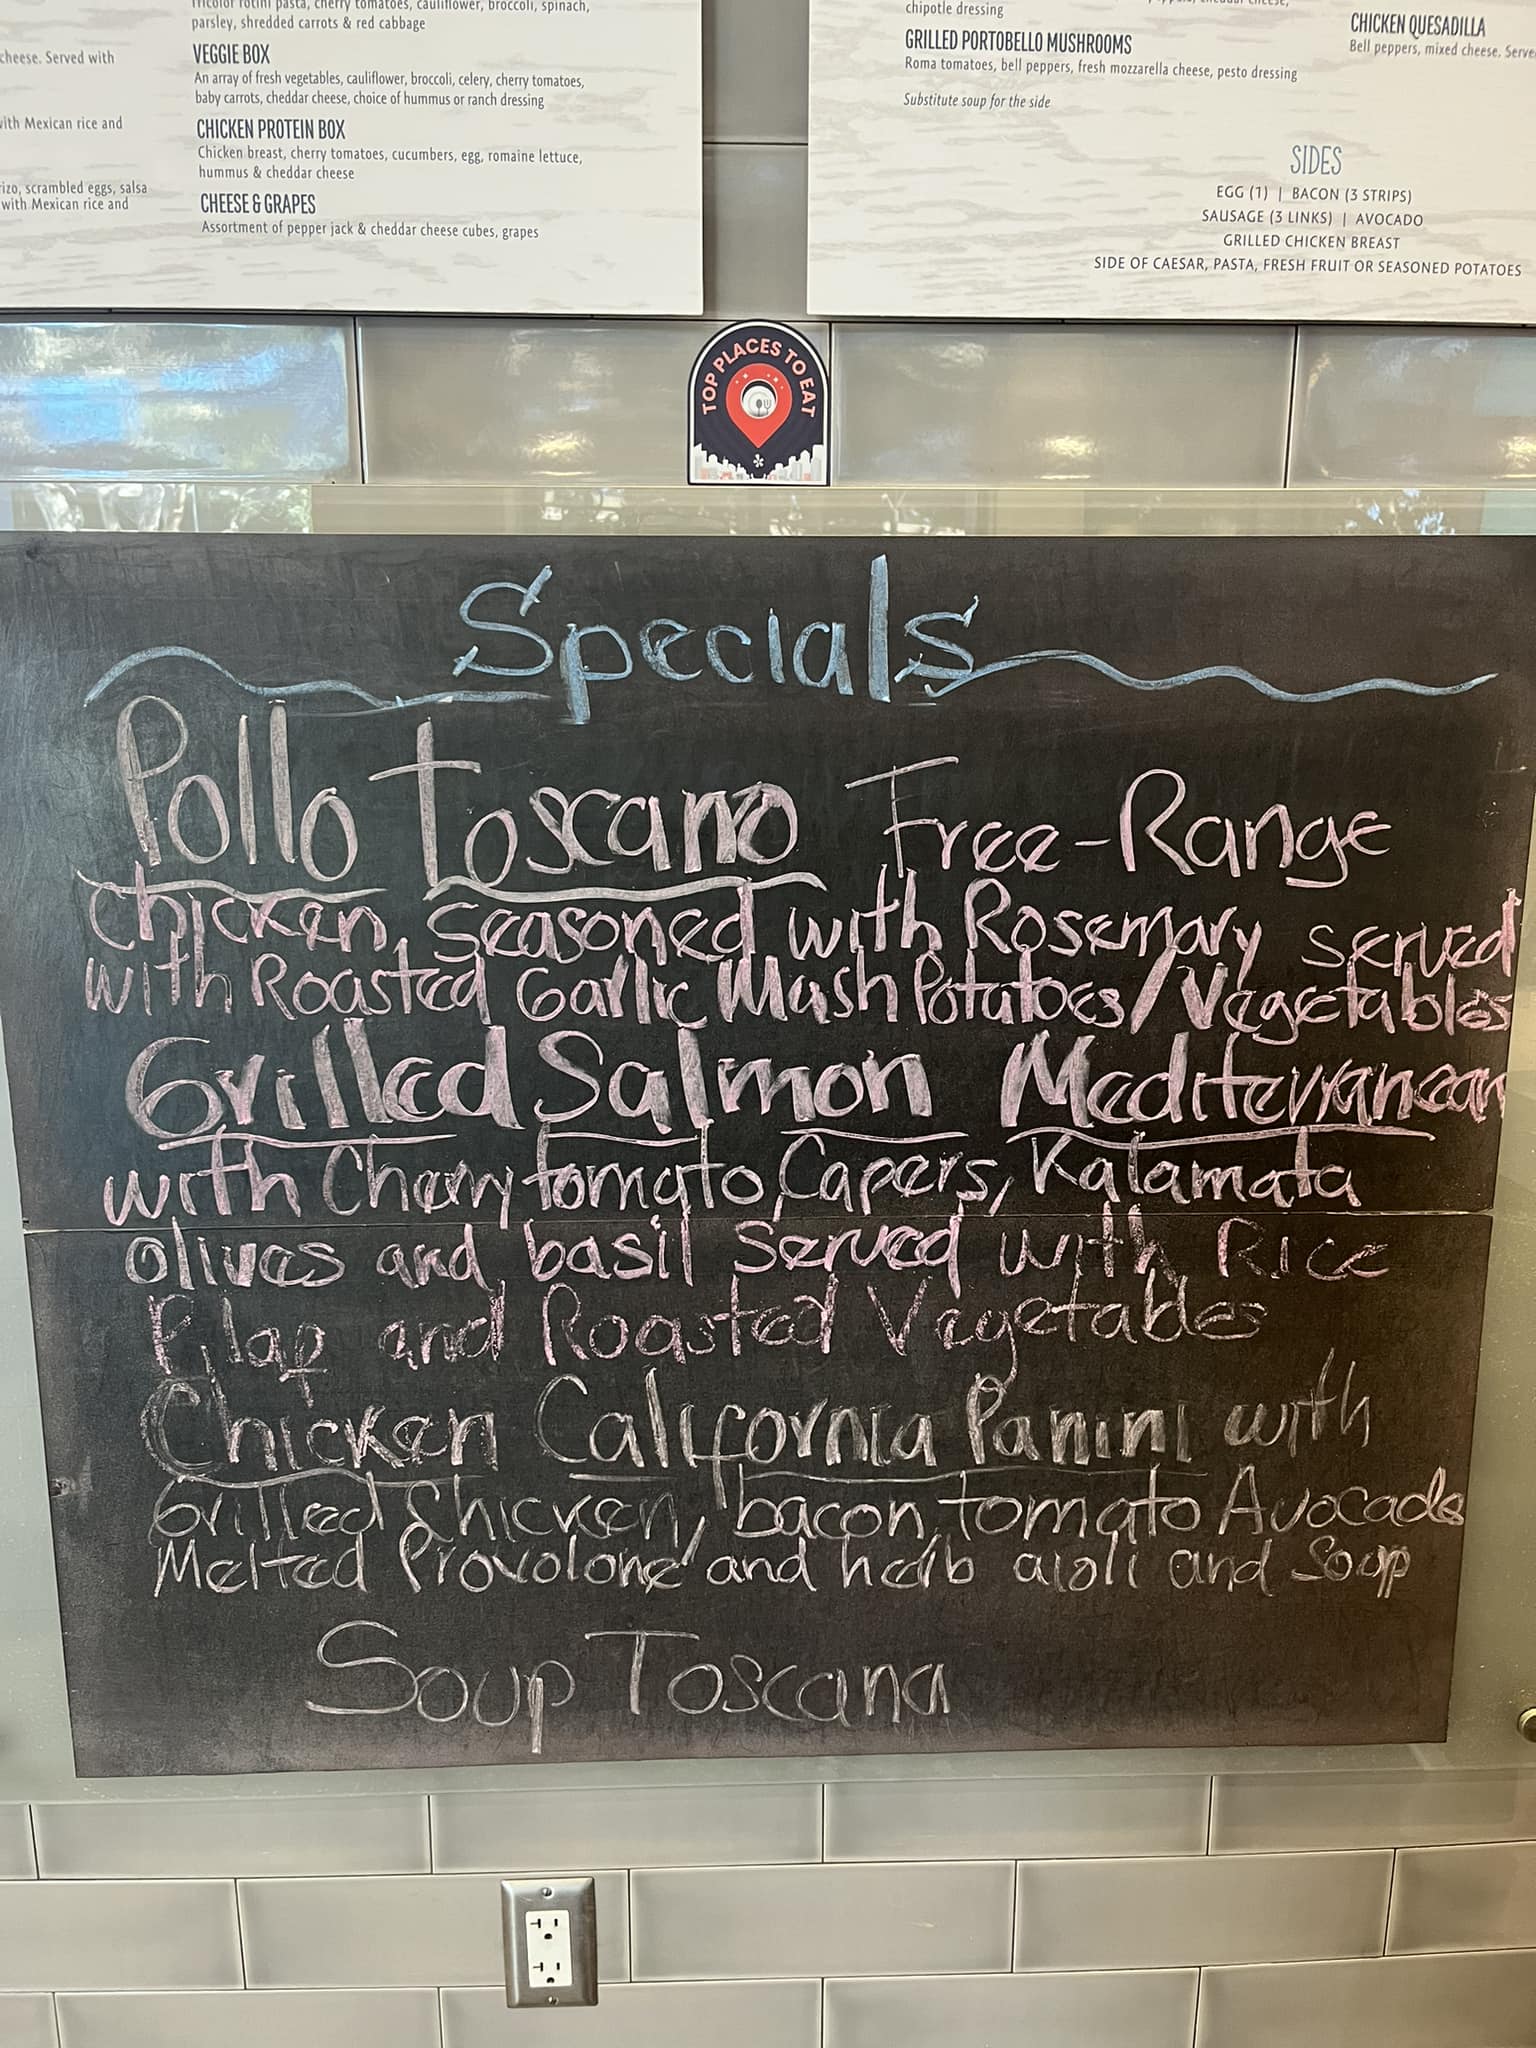 parsley, shredded carrots & red cabbage
VEGGIE BOX
An array of fresh vegetables, cauliflower, broccoli, celery, cherry tomatoes,
baby carrots, cheddar cheese, choice of hummus or ranch dressing
CHICKEN PROTEIN BOX
Chicken breast, cherry tomatoes, cucumbers, egg, romaine lettuce,
hummus & cheddar cheese
CHEESE & GRAPES
Assortment of pepper jack & cheddar cheese cubes, grapes
cheese. Served with
with Mexican rice and
scrambled eggs, salsa
with Mexican rice and
chipotle dressing
GRILLED PORTOBELLO MUSHROOMS
Roma tomatoes, bell peppers, fresh mozzarella cheese, pesto dressing
Substitute soup for the side
CHICKEN QUESADILLA
Bell peppers, mixed cheese.
SIDES
EGG (1) | BACON (3 STRIPS)
SAUSAGE (3 LINKS) | AVOCADO
GRILLED CHICKEN BREAST
SIDE OF CAESAR, PASTA, FRESH FRUIT OR SEASONED POTATOES
TOP PLACES TO EAT
Specials
Pollo Toscano Free-Range
Chicken, Seasoned with Rosemary served
with Roasted Garlic Mash Potatoes/Vegetables
Grilled Salmon Mediterranean
with Cherry tomato, Capers, Kalamata
olives and basil Served with Rice
Pilap and Roasted Vegetables
Chicken California Panini with
Grilled Chicken, bacon, tomato Avocado
Melted Provolone and herb aioli and Soup
Soup Toscana